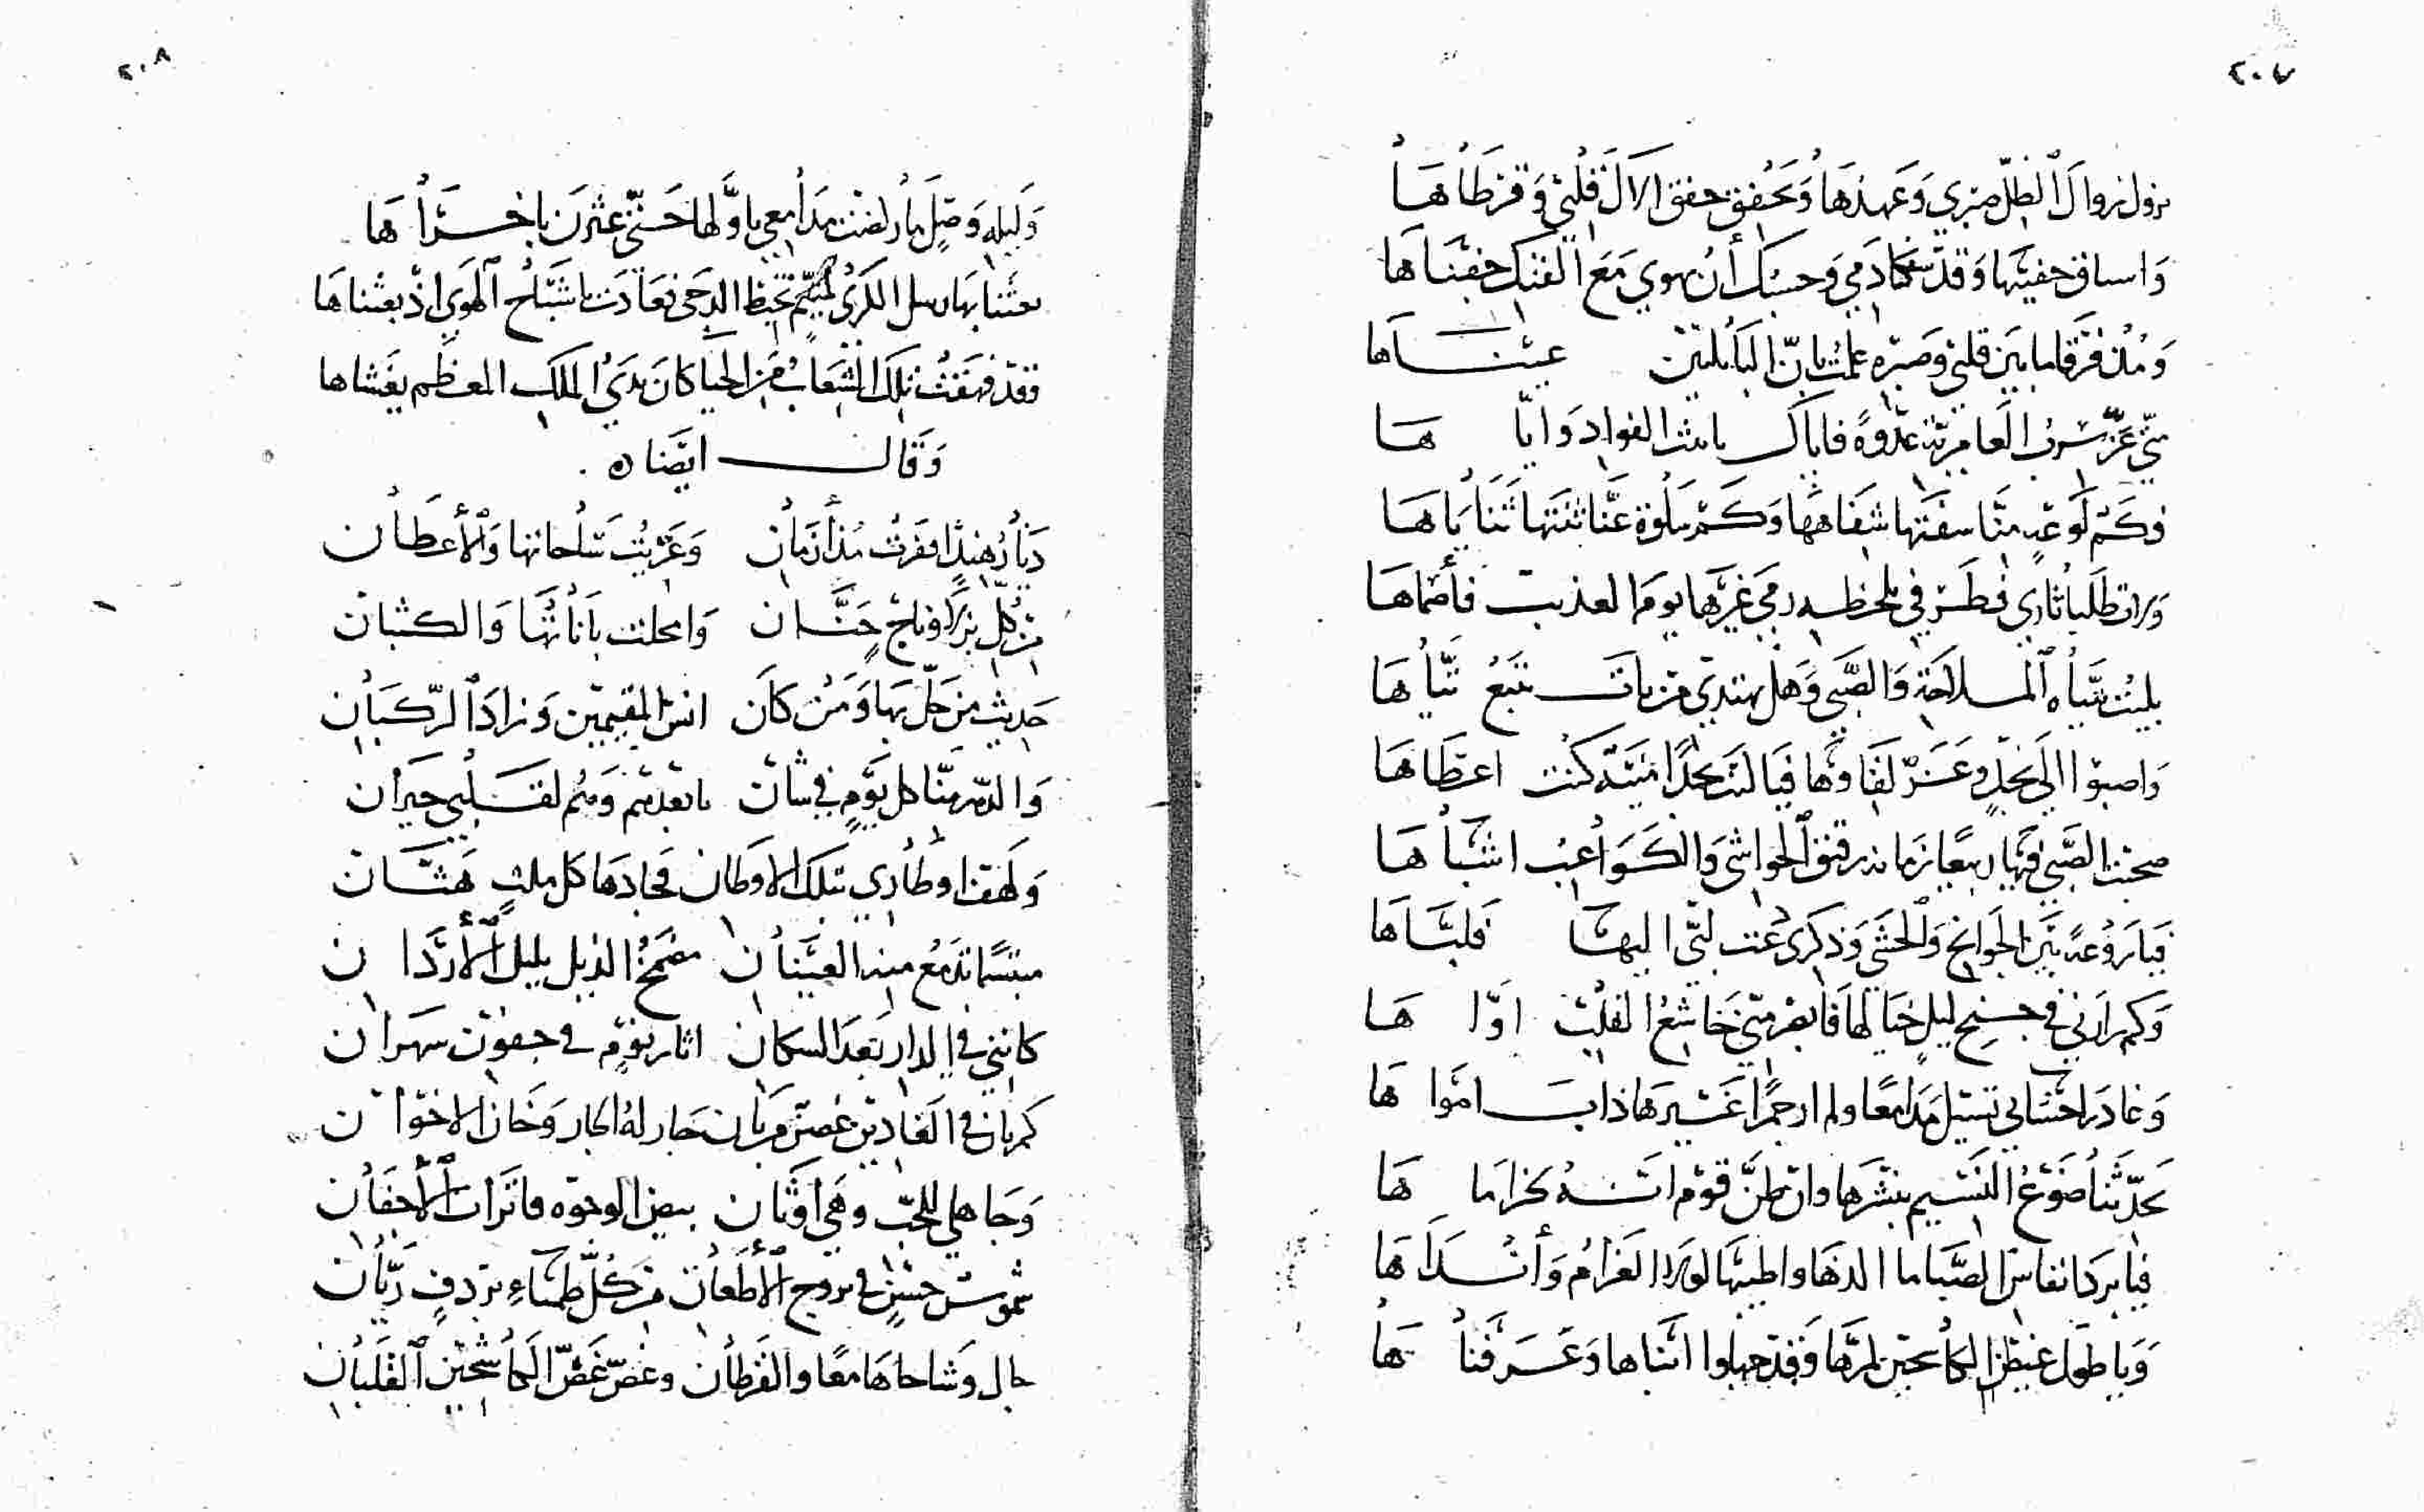 ٢٠٧
يزول زوال الظل صبري وعهدها ويخفق خفق الآل قلبي وقرطاها
وما ساق حفيتها وقد سفكا دمي وحسبك أن يهوي مع الفتك جفناها
ومذ فرقا ما بين قلبي وصبره علمت بان البابليين عيناها
متى عز سرب العامرية عدوة فاياك يا بث الفواد واياها
فكم لوعة منا سفتها شفاهها وكم سلوة عنا ثنتها ثناياها
ورات طلبا ثاري فطرفي بلحظه رمى غرها يوم العذيب فأصماها
بليت بتياه الملاحة والصبى وهل يهتدي من بات يتبع تياها
واصبوا الى نجد وعز لقاوها فيا ليت نجدا منية كنت اعطاها
صحبت الصبى فيها ربيعا زمانه رقيق الحواشي والكواعب اشباها
فيا روعة بين الجوانح والحشى وذكرى دعت لبي اليها فلباها
وكم زارني في جنح ليل خيالها فابصر مني خاشع القلب اواها
وغادر احشائي تسيل مدامعا ولم ار جمرا غيرها ذاب امواها
يحدثنا ضوع النسيم بنشرها وان ظن قوم انه بخزاماها
فيا برد انفاس الصبا ما الذها واطيبها لولا الغرام وأنداها
ويا طول غيظ الكاشحين لمرها وقد جهلوا انباها وعرفناها
٢٠٨
وليلة وصل ما رضت مدامعي باولها حتى عثرن باخراها
بعثنا بها رسل الكرى لمتيم تحيط الدجى فعادت باشباح الهوى اذ بعثناها
فقد فهقت تلك الشعاب من الحيا كان يدي الملك المعظم يغشاها
وقال ايضا ه
ديار هند اقفرت مذ أزمان وعريت سلحانها والأعطان
من كل بز اوناج حنان وامحلت باناتها والكثبان
حديث من حل بها ومن كان انس المقيمين وزاد الركبان
والدهر منا كل يوم في شان يا بعدهم وهم لقلبي جيران
ولهفتا وطاري بتلك الاوطان فجادها كل ملث هتان
مبتسما تدمع منه العينان مضمخ الذيل بليل الأردان
كانني في الدار بعد السكان اثار نوم في جفون سهران
كم بان في الغادين غصن من بان جار له الجار وخان الاخوان
وجاهلي للحب وهي اوثان بيض الوجوه فاترات الأجفان
شموس حسن في بروج الأظعان من كل ظمياء بردف ريان
جال وشاحاها معا والقرطان وغص غض الكاشحين القلبان